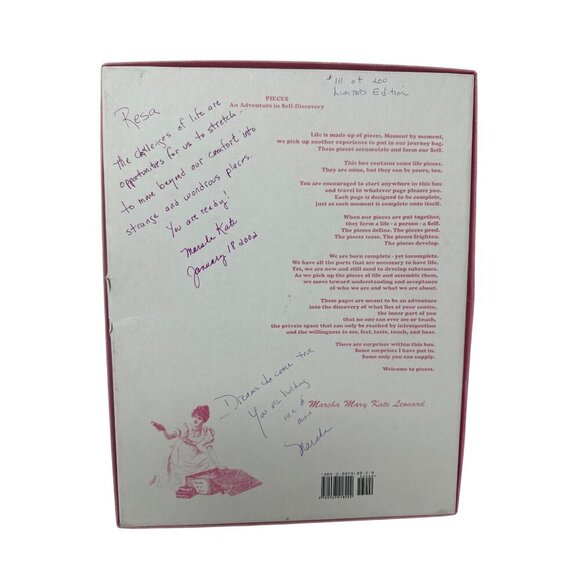 #111 of 200
Limited Edition
PIECES
An Adventure in Self-Discovery
Resa
The challenges of life are
opportunities for us to stretch...
to move beyond our comfort into
strange and wondrous places.
You are ready!
Marsha Kate
January 18 2002
Life is made up of pieces. Moment by moment,
we pick up another experience to put in our journey bag.
These pieces accumulate and form our Self.
This box contains some life pieces.
They are mine, but they can be yours, too.
You are encouraged to start anywhere in this box
and travel to whatever page pleases you.
Each page is designed to be complete,
just as each moment is complete unto itself.
When our pieces are put together,
they form a life - a person - a Self.
The pieces define. The pieces prod.
The pieces tease. The pieces frighten.
The pieces develop.
We are born complete - yet incomplete.
We have all the parts that are necessary to have life.
Yet, we are new and still need to develop substance.
As we pick up the pieces of life and assemble them,
we move toward understanding and acceptance
of who we are and what we are about.
These pages are meant to be an adventure
into the discovery of what lies at your center,
the inner part of you
that no one can ever see or touch,
the private space that can only be reached by introspection
and the willingness to see, feel, taste, touch, and hear.
There are surprises within this box.
Some surprises I have put in.
Some only you can supply.
Welcome to pieces.
Marsha Mary Kate Leonard
...Dreams do come true
You are holding
one of
mine
Marsha